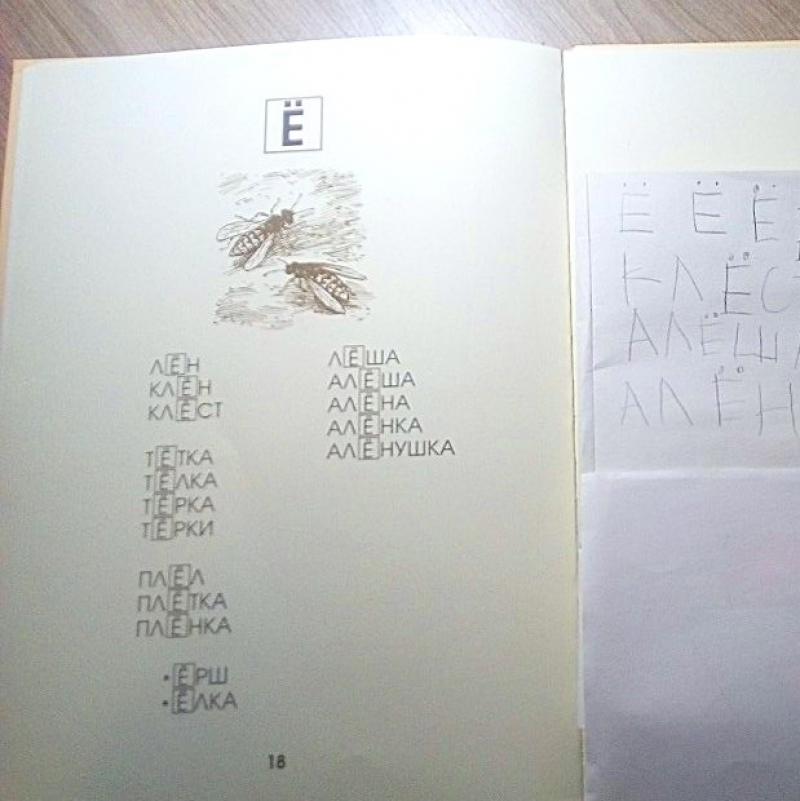 Ё
ЛЁН
КЛЁН
КЛЁСТ
ТЁТКА
ТЁЛКА
ТЁРКА
ТЁРКИ
ПЛЁЛ
ПЛЁТКА
ПЛЁНКА
•ЁРШ
•ЁЛКА
ЛЁША
АЛЁША
АЛЁНА
АЛЁНКА
АЛЁНУШКА
18
Ё Ё Ё
КЛЁСТ
АЛЁША
АЛЁН